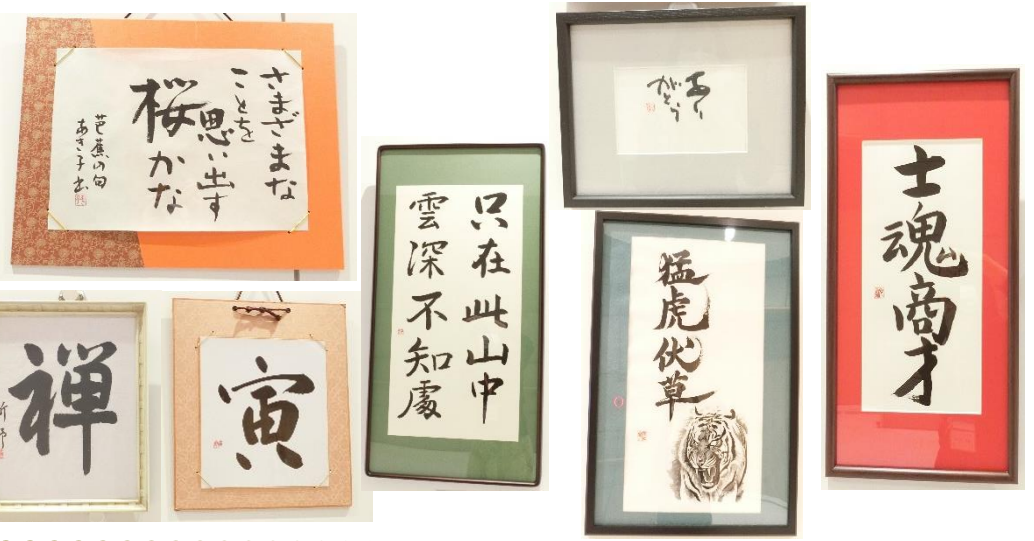 さまざまな
ことを
思い出す
桜かな
芭蕉の句
あき子書
禅
寅
只在此山中
雲深不知處
あり
がとう
猛虎伏草
士魂商才